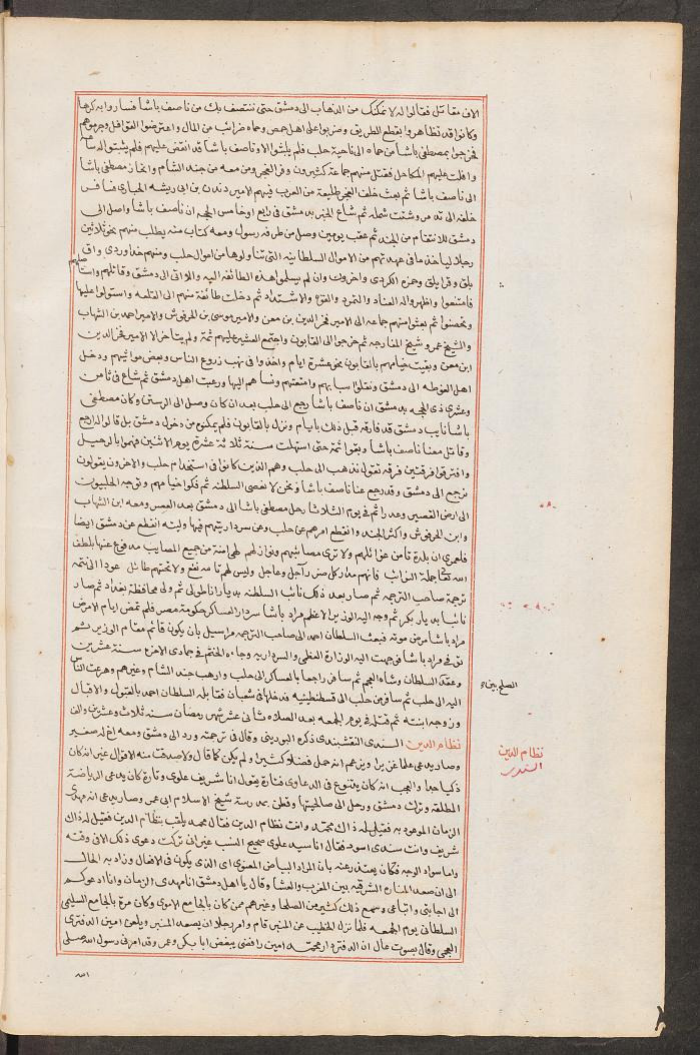 الاف مقاتل فقالوا له لا نمكنك من الذهاب الى دمشق حتى ننتصف بك من ناصف باشا فساروا به كرها
وكانوا قد تظاهروا بقطع الطريق وضربوا على اهل حمص وحماه ضرائب من المال واعترضوا القوافل وجرموهم
فخرجوا بمصطفى باشا من حماه الى ناحية حلب فلم يلبثوا الا وناصف باشا قد انقض عليهم فلم يثبتوا له ساعه
وافلت عليهم المكاحل فقتل منهم جماعة كثيرون وفر العجمى ومن معه من جند الشام وانحاز مصطفى باشا
الى ناصف باشا ثم بعث خلف العجمى طليعة من العرب فيهم الامير دندن بن ابى ريشه الحيارى فساق
خلفه الى تدمر وشتت شمله ثم شاع الخبر بدمشق فى رابع او خامس الحجه ان ناصف باشا واصل الى
دمشق للانتقام من الجند ثم عقب يومين وصل من طرفه رسول ومعه كتاب منه يطلب منهم نحو ثلاثين
رجلا لياخذ ما فى عهدتهم من الاموال السلطانيه التى تناولوها من اموال حلب ومنهم خداوردى واق
بلق وقرا يلق وحمزه الكردى واخرون وان لم يسلموا هذه الطائفه اليه والا اتى الى دمشق وقاتلهم واستاصلهم
فامتنعوا واظهروا له العناد والتمرد والقوة والاستعداد ثم دخلت طائفة منهم الى القلعه واستولوا عليها
وتحصنوا ثم بعثوا منهم جماعه الى الامير فخر الدين بن معن والامير موسى بن الحرفوش والامير احمد بن الشهاب
والشيخ عمرو شيخ المفارجه ثم خرجوا الى القابون واجتمع العشير عليهم ثمة ولم يتاخر الا الامير فخر الدين
ابن معن وبقيت خيامهم بالقابون نحو عشرة ايام واخذوا فى نهب زروع الناس وبعض مواشيهم ودخل
اهل الغوطه الى دمشق ونقلوا سبابهم وامتعتهم ونساهم اليها ورعبت اهل دمشق ثم شاع فى ثامن
وعشرى ذى الحجه بدمشق ان ناصف باشا رجع الى حلب بعد ان كان وصل الى الرستن وكان مصطفى
باشا نايب دمشق قد فارقه قبل ذلك بايام ونزل بالقابون فلم يمكنوه من دخول دمشق بل قالوا له ارجع
وقاتل معنا ناصف باشا وبقوا ثمة حتى استهلت سنة ثلاثة عشرة يوم الاثنين فهموا بالرحيل
وافترقوا فرقتين فرقه تقول نذهب الى حلب وهم الذين كانوا فى استخدام حلب والاخرون يقولون
نرجع الى دمشق وقد رجع عنا ناصف باشا ونحن لا نعصى السلطنه ثم فكوا خيامهم وتوجه الحلبيون
الى ارض القصير وعدرا ثم فى يوم الثلاثا رحل مصطفى باشا الى دمشق بعد العصر ومعه ابن الشهاب
وابن الحرفوش واكثر الجند وانقطع امرهم عن حلب وعن سرداريتهم فيها وليته انقطع عن دمشق ايضا
فلعمرى ان بلدة تامن غوائلهم ولا ترى مصائبهم ونوازلهم لهى امنة من جميع المصايب مدفوع عنها بلطف
الله تعالى جملة النوائب فانهم مدار كل ضرر آجل وعاجل وليس لهم تامة نفع ولا تحتهم طائل عودا الى تتمة
ترجمة صاحب الترجمه ثم صار بعد ذلك نائب السلطنه بديار اناطولى ثم ولى محافظة بغداد ثم صار
نائبا بديار بكر ثم وجه اليه الوزير الاعظم مراد باشا سردار العساكر حكومة مصر فلم تمض ايام لامراض
مراد باشا مرض موته فبعث السلطان احمد الى صاحب الترجمه مراسيل بان يكون قائم مقام الوزير ثم
توفى مراد باشا فوجهت اليه الوزارة العظمى والسرداريه وجاءه الختم فى جمادى الاخره سنة عشرين
وعقد السلطان وشاه العجم ثم سافر راجعا بالعساكر الى حلب وارهب جند الشام وغيرهم وهرعت الناس
اليه الى حلب ثم سافر من حلب الى قسطنطينيه فدخلها فى شعبان فقابله السلطان احمد بالقبول والاقبال
وزوجه ابنته ثم قتله فى يوم الجمعه بعد الصلاه ثانى عشر شهر رمضان سنه ثلاث وعشرين والف
نظام الدين السندى النقشبندى ذكره البورينى وقال فى ترجمته ورد الى دمشق ومعه اخ له صغير
وصار يدعى علما غزيرا ويزعم انه حل فضلا كثيرا ولم يكن كما قال ولا صدقت منه الاقوال غير انه كان
ذكيا جدا والعجب انه كان يتنوع فى الدعاوى فتارة يقول انا شريف علوى وتارة كان يدعى الرياضة
المطلقه وترك دمشق ورحل الى صالحيتها وقطن بمدرسة شيخ الاسلام ابى عمر وصار يدعى انه مهدى
الزمان الموعود به فقيل له ذاك محمد وانت نظام الدين فقال محمد يلقب بنظام الدين فقيل له ذاك
شريف وانت سندى اسود فقال انا سيد علوى صحيح النسب غير انى تركت دعوى ذلك الان وقته
واما سواد الوجه فكان يعتذر عنه بان المراد البياض المعنوى اى الذى يكون فى الافعال وزاد به الحال
الى ان صعد المناره الشرقيه بين المغرب والعشا وقال يا اهل دمشق انا مهدى الزمان وانا ادعوكم
الى اجابتى واتباعى وسمع ذلك كثير من الصلحا وغيرهم ممن كان بالجامع الاموى وكان مرة بالجامع السليمى
السلطانى يوم الجمعه فلما نزل الخطيب عن المنبر قام وامر رجلا ان يصعد المنبر ويلعن امين الدفترى
العجمى وقال بصوت عال ان الدفتردار محمد امين رافضى يبغض ابا بكر وعمر وقد امرنى رسول الله صلى
الصلح بينه
نظام الدين
السندى
الله